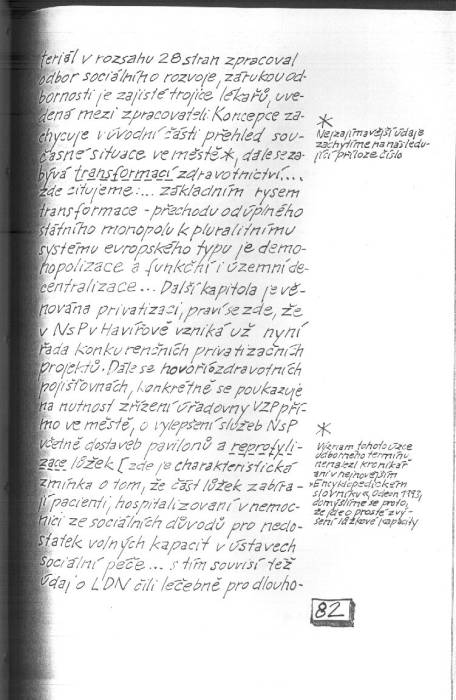 teriál v rozsahu 28 stran zpracoval
odbor sociálního rozvoje, zárukou od-
bornosti je zajisté trojice lékařů, uve-
dená mezi zpracovateli. Koncepce za-
chycuje v úvodní části přehled sou-
časné situace ve městě*, dále se za-
bývá transformací zdravotnictví....
zde citujeme:... základním rysem
transformace - přechodu od úplného
státního monopolu k pluralitnímu
systému evropského typu je demo-
nopolizace a funkční i územní de-
centralizace... Další kapitola je vě-
nována privatizaci, praví se zde, že
v NsP v Havířově vzniká už nyní
řada konkurenčních privatizačních
projektů. Dále se hovoří o zdravotních
pojišťovnách, konkrétně se poukazuje
na nutnost zřízení úřadovny VZP pří-
mo ve městě, o vylepšení služeb NsP
včetně dostaveb pavilonů a reprofyli-
zace lůžek [zde je charakteristická
zmínka o tom, že část lůžek zabíra-
jí pacienti, hospitalizovaní v nemoc-
nici ze sociálních důvodů pro nedo-
statek volných kapacit v ústavech
sociální péče... s tím souvisí též
údaj o LDN čili léčebně pro dlouho-
*
Nejzajímavější údaje
zachytíme na následu-
jící příloze číslo
*
Význam tohoto úzce
odborného termínu
nenalezl kronikář
ani v nejnovějším
Encyklopedickém
slovníku, Odeon 1993,
domýšlíme se proto,
že jde o prosté zvý-
šení lůžkové kapacity
82